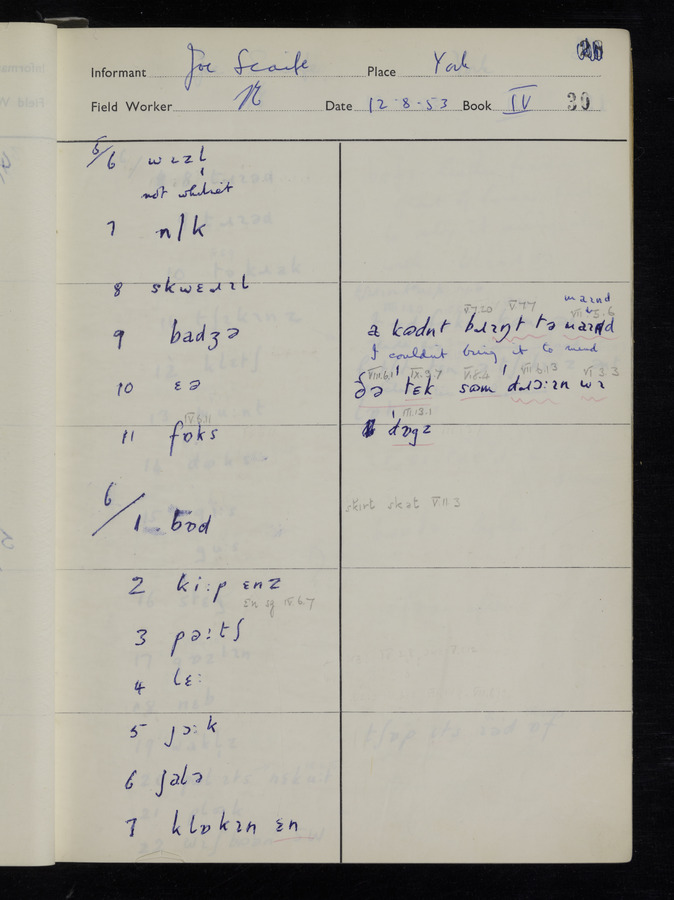 26
Informant Joe Scaife Place York
Field Worker N Date 12-8-53 Book IV 30
5/6 wɪzl
not whitrit
7 n/k
8 skwɛɹɪl
9 badʒə
10 ɛə
IV.5.11
11 fɒks
6/1 bɒd
2 ki:p ɛnz
ɛn sg IV.6.7
3 pə:tʃ
4 lɛ:
5 jɔ:k
6 ʃalə
7 klɒkɪn ɛn
maɪnd
V.7.20 V.7.7 VII.5.6
a kədnt bɹɪŋt tə maɪnd
I couldn't bring it to mind
VIII.6.1 IX.9.7 VI.8.4 VII.6.13 VI.3.3
ðə tɛk səm dɹɔ:ɪn wɪ
III.13.1
dɒgz
skirt skət V.11.3